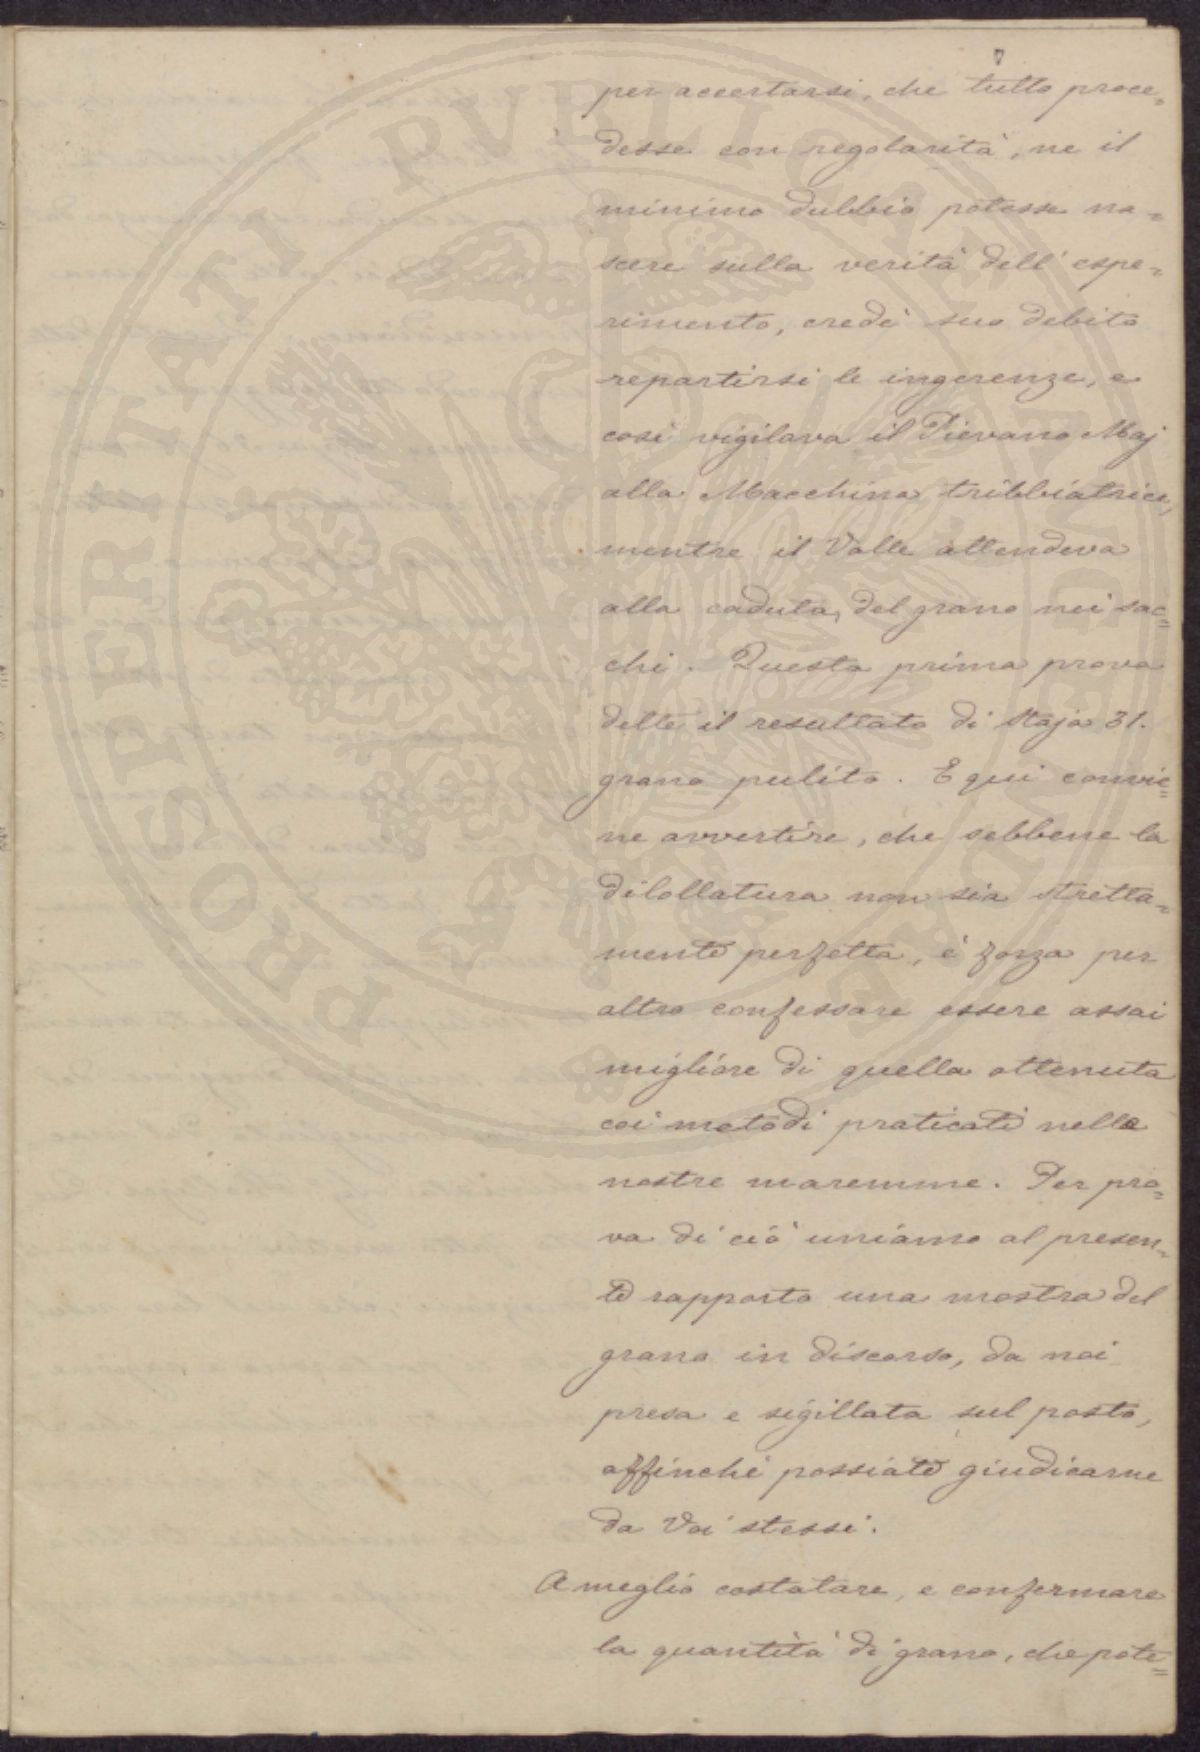 per accertarsi, che tutto proce=
desse con regolarità, ne il
minimo dubbio potesse na=
scere sulla verità dell'espe=
rimento, credè suo debito
repartirsi le ingerenze, e
così vigilava il Pievano Maj
alla Macchina tribbiatrice,
mentre il Valle attendeva
alla caduta, del grano nei sac=
chi. Questa prima prova
dette il resultato di staja 31.
grano pulito. E qui convie=
ne avvertire, che sebbene la
dilollatura non sia stretta=
mente perfetta, è forza per
altro confessare essere assai
migliore di quella ottenuta
coi metodi praticati nelle
nostre maremme. Per pro=
va di ciò uniamo al presen=
te rapporto una mostra del
grano in discorso, da noi
presa e sigillata sul posto,
affinchè possiate giudicarne
da Voi stessi.
A meglio costatare, e confermare
la quantità di grano, che pote=
PROSPERITATI PVBLICAE AVGENDAE